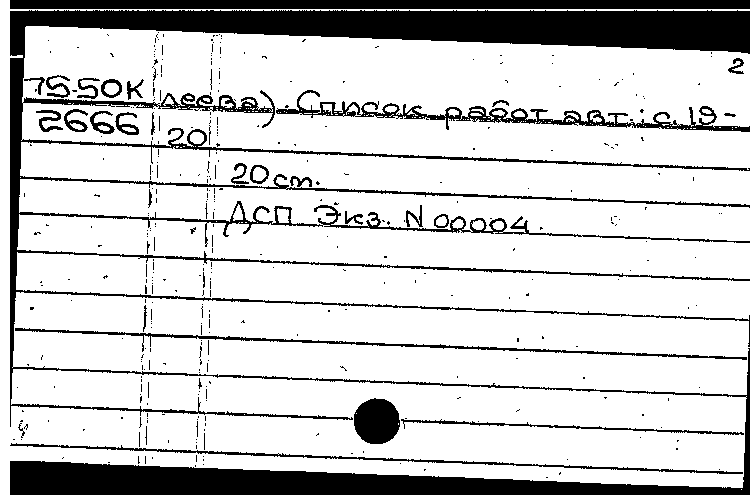 2
75-50К леева). Список работ авт.: с. 19-
2666 20
20 см.
ДСП Экз. N 00004.